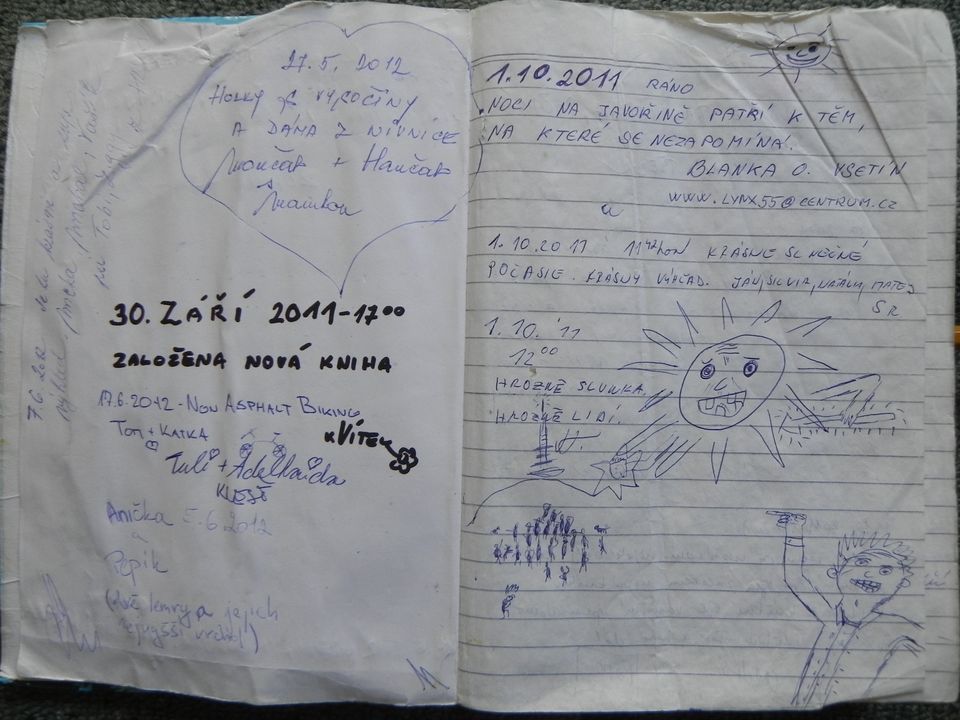 27.5. 2012
HOLKY Z VYSOČINY
A DÁMA Z NIVNICE
+ Hančab
30. ZÁŘÍ 2011-17⁰⁰
ZALOŽENA NOVÁ KNIHA
17.6.2012 - NON ASPHALT BIKING
TOM + KATKA
KVÍTEK
Tuli + Adelhaida
KLEŠŤ
Anička 5.6.2012
a
Pepík
(dvě lemry a jejich
nejvyšší vrchol)
7.6.2012
1.10.2011 RÁNO
NOCI NA JAVOŘINĚ PATŘÍ K TĚM,
NA KTERÉ SE NEZAPOMÍNÁ!
BLANKA O. VSETÍN
WWW.LYNX55@CENTRUM.CZ
1.10.2011 11⁴² hon KRÁSNE SLNEČNÉ
POČASIE. KRÁSNY VÝHĽAD. JÁN, SILVIA, NATÁLIA, MATEJ
SR
1.10.'11
12⁰⁰
HROZNĚ SLUNKA.
HROZNĚ LIDÍ.